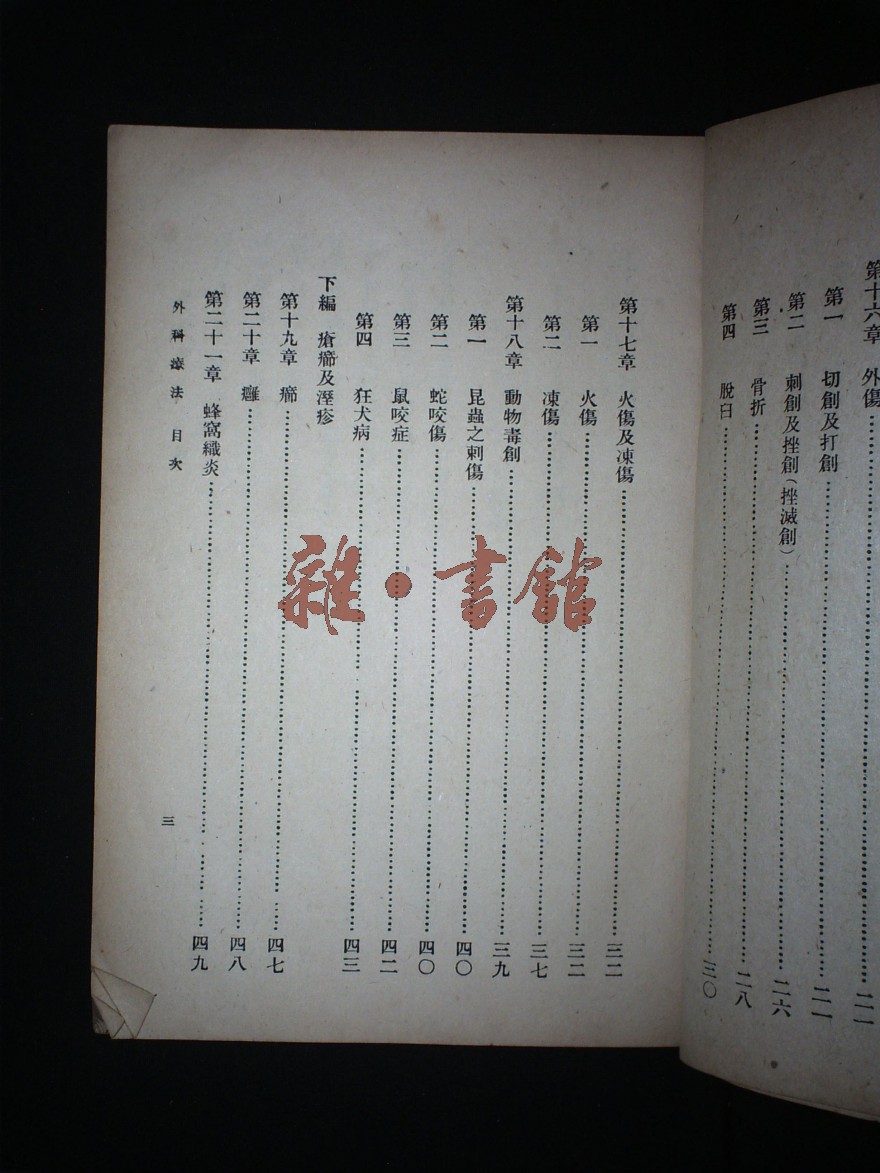 第十六章　外傷……二一
第一　切創及打創……二一
第二　刺創及挫創（挫滅創）……二六
第三　骨折……二八
第四　脫臼……三〇
第十七章　火傷及凍傷……三二
第一　火傷……三二
第二　凍傷……三七
第十八章　動物毒創……三九
第一　昆蟲之刺傷……四〇
第二　蛇咬傷……四〇
第三　鼠咬症……四二
第四　狂犬病……四三
下編　瘡癤及溼疹
第十九章　癤……四七
第二十章　癰……四八
第二十一章　蜂窩織炎……四九
外科療法　目次
三
雜·書館